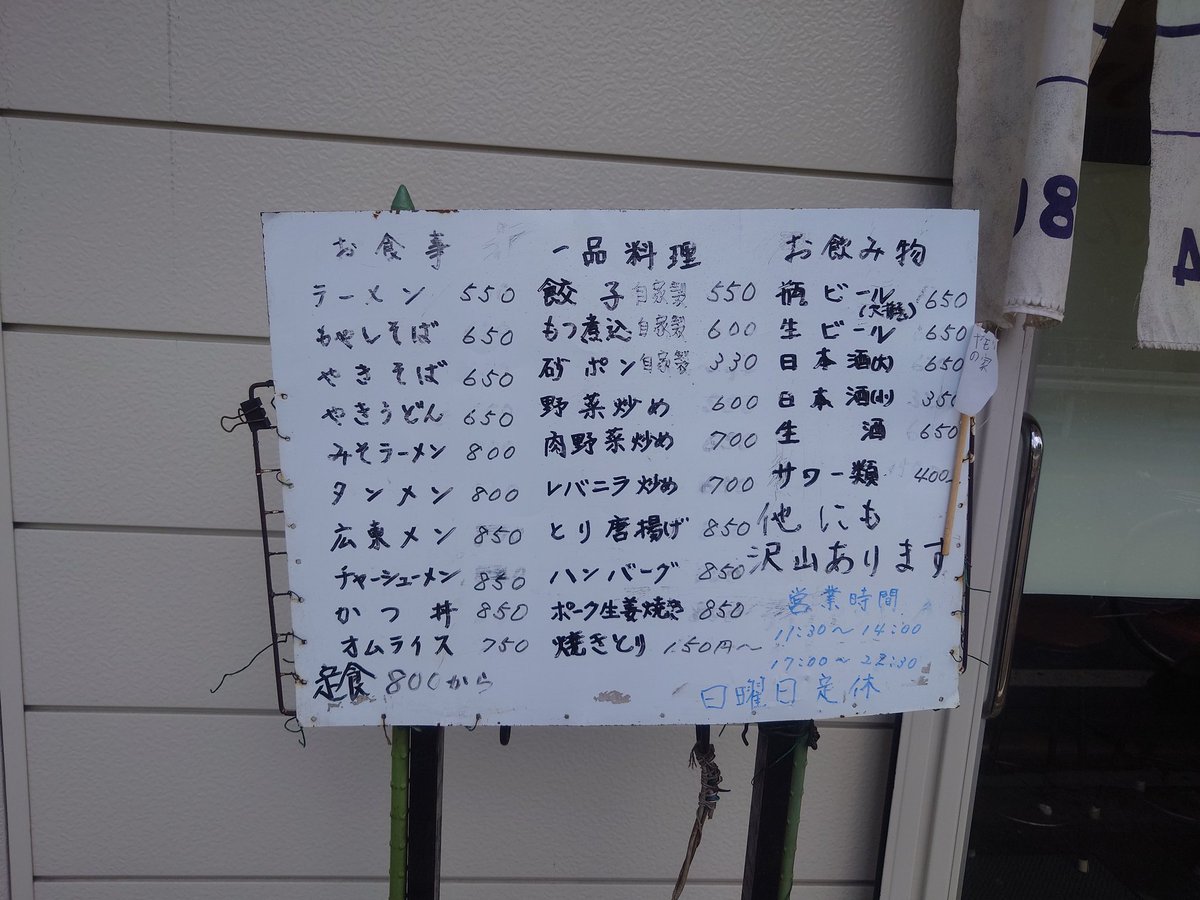 お食事
ラーメン 550
もやしそば 650
やきそば 650
やきうどん 650
みそラーメン 800
タンメン 800
広東メン 850
チャーシューメン 850
かつ丼 850
オムライス 750
定食 800から
一品料理
餃子 自家製 550
もつ煮込 自家製 600
砂ポン 自家製 330
野菜炒め 600
肉野菜炒め 700
レバニラ炒め 700
とり唐揚げ 850
ハンバーグ 850
ポーク生姜焼き 850
焼きとり 150円〜
お飲み物
瓶ビール 650
生ビール 650
日本酒(大) 650
日本酒(小) 350
生酒 650
サワー類 400
他にも
沢山あります
営業時間
11:30〜14:00
17:00〜22:30
日曜日定休